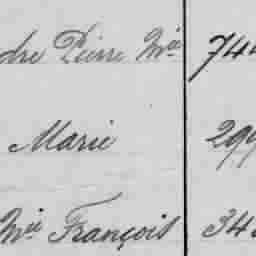 dre Pierre Mie 744
Marie 299
Mie François 343